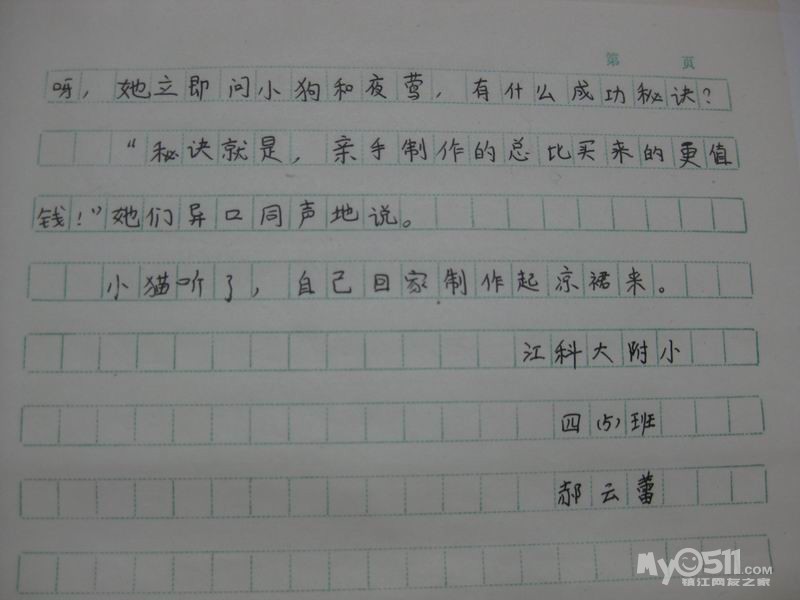 第 页
呀，她立即问小狗和夜莺，有什么成功秘诀？
“秘诀就是，亲手制作的总比买来的更值
钱！”她们异口同声地说。
小猫听了，自己回家制作起凉裙来。
江科大附小
四（5）班
郝云蕾
My0511.com
镇江网友之家